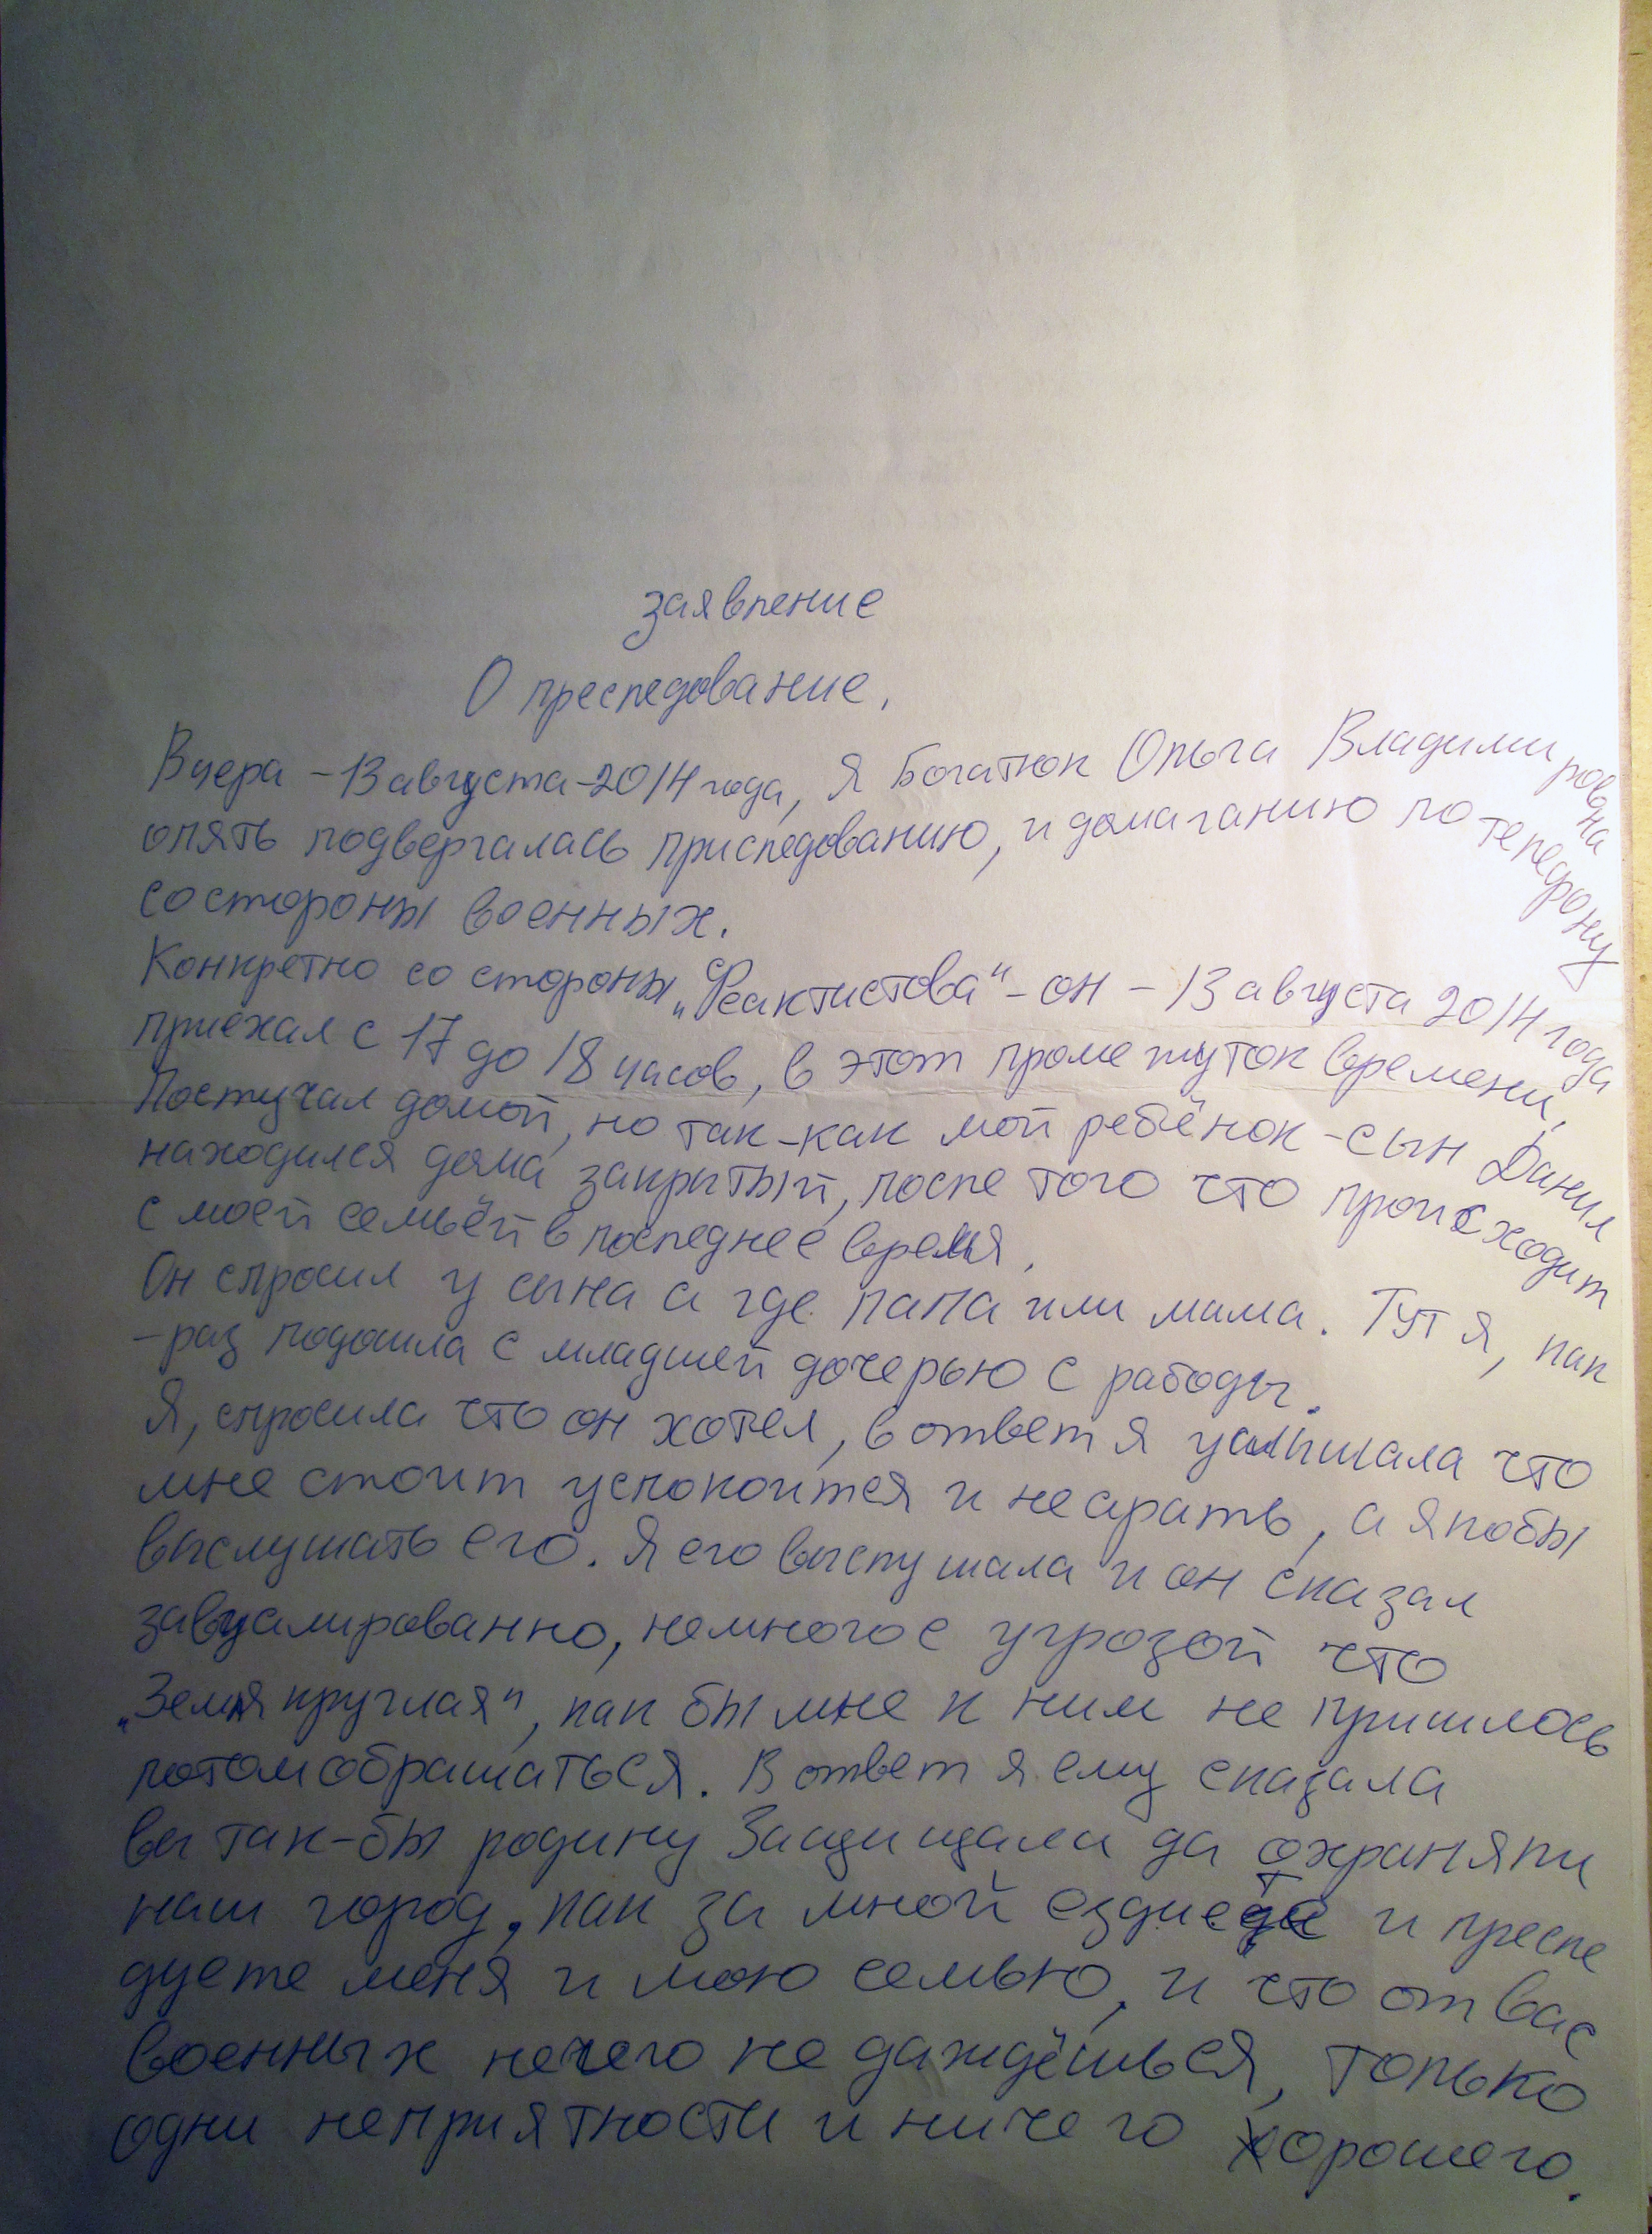 заявление
О преследование.
Вчера - 13 августа - 2014 года, я Богатюк Ольга Владимировна
опять подвергалась приследованию, и домаганию по телефону
со стороны военных.
Конкретно со стороны "Феактистова" - он - 13 августа 2014 года
приехал с 17 до 18 часов, в этот промежуток времени.
Постучал домой, но так-как мой ребёнок - сын Данил
находился дома закрытый, после того что происходит
с моей семьёй в последнее время.
Он спросил у сына а где папа или мама. Тут я, как
-раз подошла с младшей дочерью с работы.
Я, спросила что он хотел, в ответ я услышала что
мне стоит успокоится и не орать, а якобы
выслушать его. Я его выслушала и он сказал
завуалированно, немного с угрозой что
"Земля круглая", как бы мне к ним не пришлось
потом обращаться. В ответ я ему сказала
вы так-бы родину Защищали да охраняли
наш город, как за мной ездиете и пресле
дуете меня и мою семью, и что от вас
военных нечего не даждёшься, только
одни неприятности и ничего хорошего.